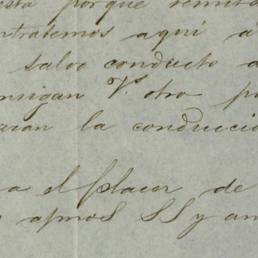 esta porque remita
ntratemos aquí á
salvo conducto a
nsigan Vs otro po
aran la conducció
a el placer de
afmos SS y am